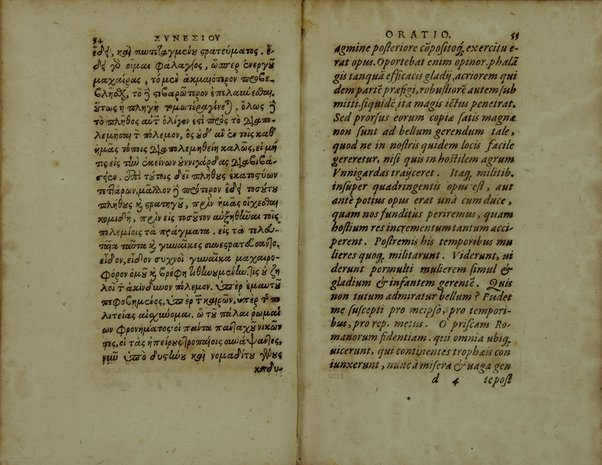 54 ΣΥΝΕΣΙΟΥ
ἔδει, καὶ πεπυ στρατεύματος. ἔ-
δει γὸ οἶμαι φάλαγγος, ὥσπερ ἐνεργοῦ
μαχαίρας, τὸ μὲν ἀκμαιότερον προβε-
βλῆσθ, τὸ ἢ στιβαρώτερον ἐπιλαμ
ὕτως ἡ πληγὴ ὅλως ἢ
τὸ πλῆθος αὐτ ὀλίγον ἐστὶ πρὸς τὸ
πολεμῆσαι τ πόλεμον, ὃς ἐν τοῖς καθ᾽
ἡμᾶς τόποις καλῶς, εἰ μή
τις εἰς τὼ ἐκείνων οὐννιγάρδας
σειεν. ἔτι τοῖς δεῖ πλήθους
τεττάρων, μᾶλλον ἢ πρότερον ἔδει τοσύτυ
πλήθους κ στρατηγοῦ, πρὶν ἡμᾶς
πρὶν εἰς τοσοῦτον αὐξηθῆναι τοῖς
πολεμίοις τὰ πράγματα. εἰς τὰ τελευ-
ταῖα ταῦτα κ γυναῖκες συνεστρατεύ
εἶδον, εἶδον συχνοὶ γυναῖκα μαχαιρο-
φόρον ὁμοῦ κ βρέφη
λοῖ τ ἀκίνδυνον πόλεμον. ὑπὲρ ἐμαυτοῦ
ὑπὲρ τ καιρῶν, ὑπὲρ τ πο-
λιτείας αἰσχύνομαι. ὦ τῦ πάλαι ῥωμαί
ων φρονήματος· οἱ πάντα πανταχοῦ νικῶν-
τες, οἱ τὰς ἠπείρυς τροπαίοις συνάψαντες,
νῦν ὑπὸ δυστήνυ καὶ νομάδος γένυς
κινδυ-
ORATIO. 55
agmine posteriore cōpositoq́; exercitu e-
rat opus. Oportebat enim opinor phalā
gis tanquā efficacis gladij, acriorem qui
dem partē præfigi, robustiorē autem sub
mitti. siquidē ita magis ictus penetrat.
Sed prorsus eorum copiæ satis magnæ
non sunt ad bellum gerendum tale,
quod ne in nostris quidem locis facile
gereretur, nisi quis in hostilem agrum
Vnnigardas traijceret. Itaq; militib.
insuper quadringentis opus est, aut
ante potius opus erat unà cum duce,
quam nos funditus periremus, quam
hostium res incrementum tantum acci
perent. Postremis his temporibus mu
lieres quoq; militarunt. Viderunt, ui
derunt permulti mulierem simul &
gladium & infantem gerentē. Quis
non tutum admiratur bellum? Pudet
me suscepti pro meipso, pro tempori-
bus, pro rep. metus. O priscam Ro-
manorum fidentiam. qui omnia ubiq;
uicerunt, qui continentes trophæis con
iunxerunt, nunc à misera & uaga gen
d 4 te post